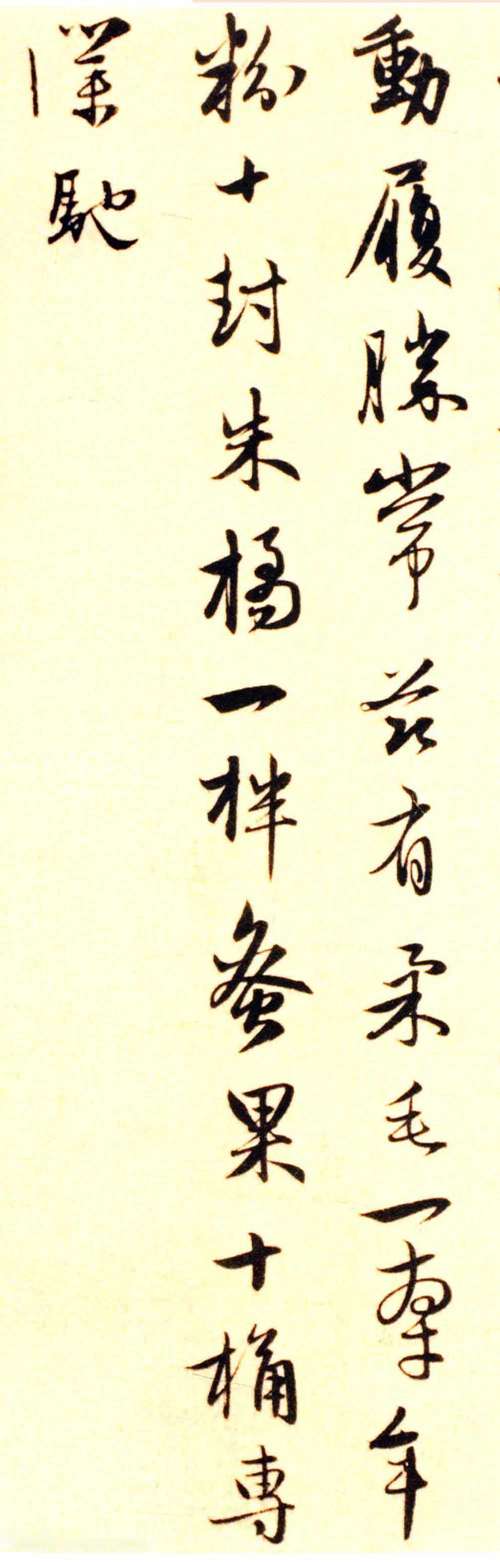 動履勝常茲有柔毛一牽年
粉十封朱橘一柈蚤果十桶専
僕馳